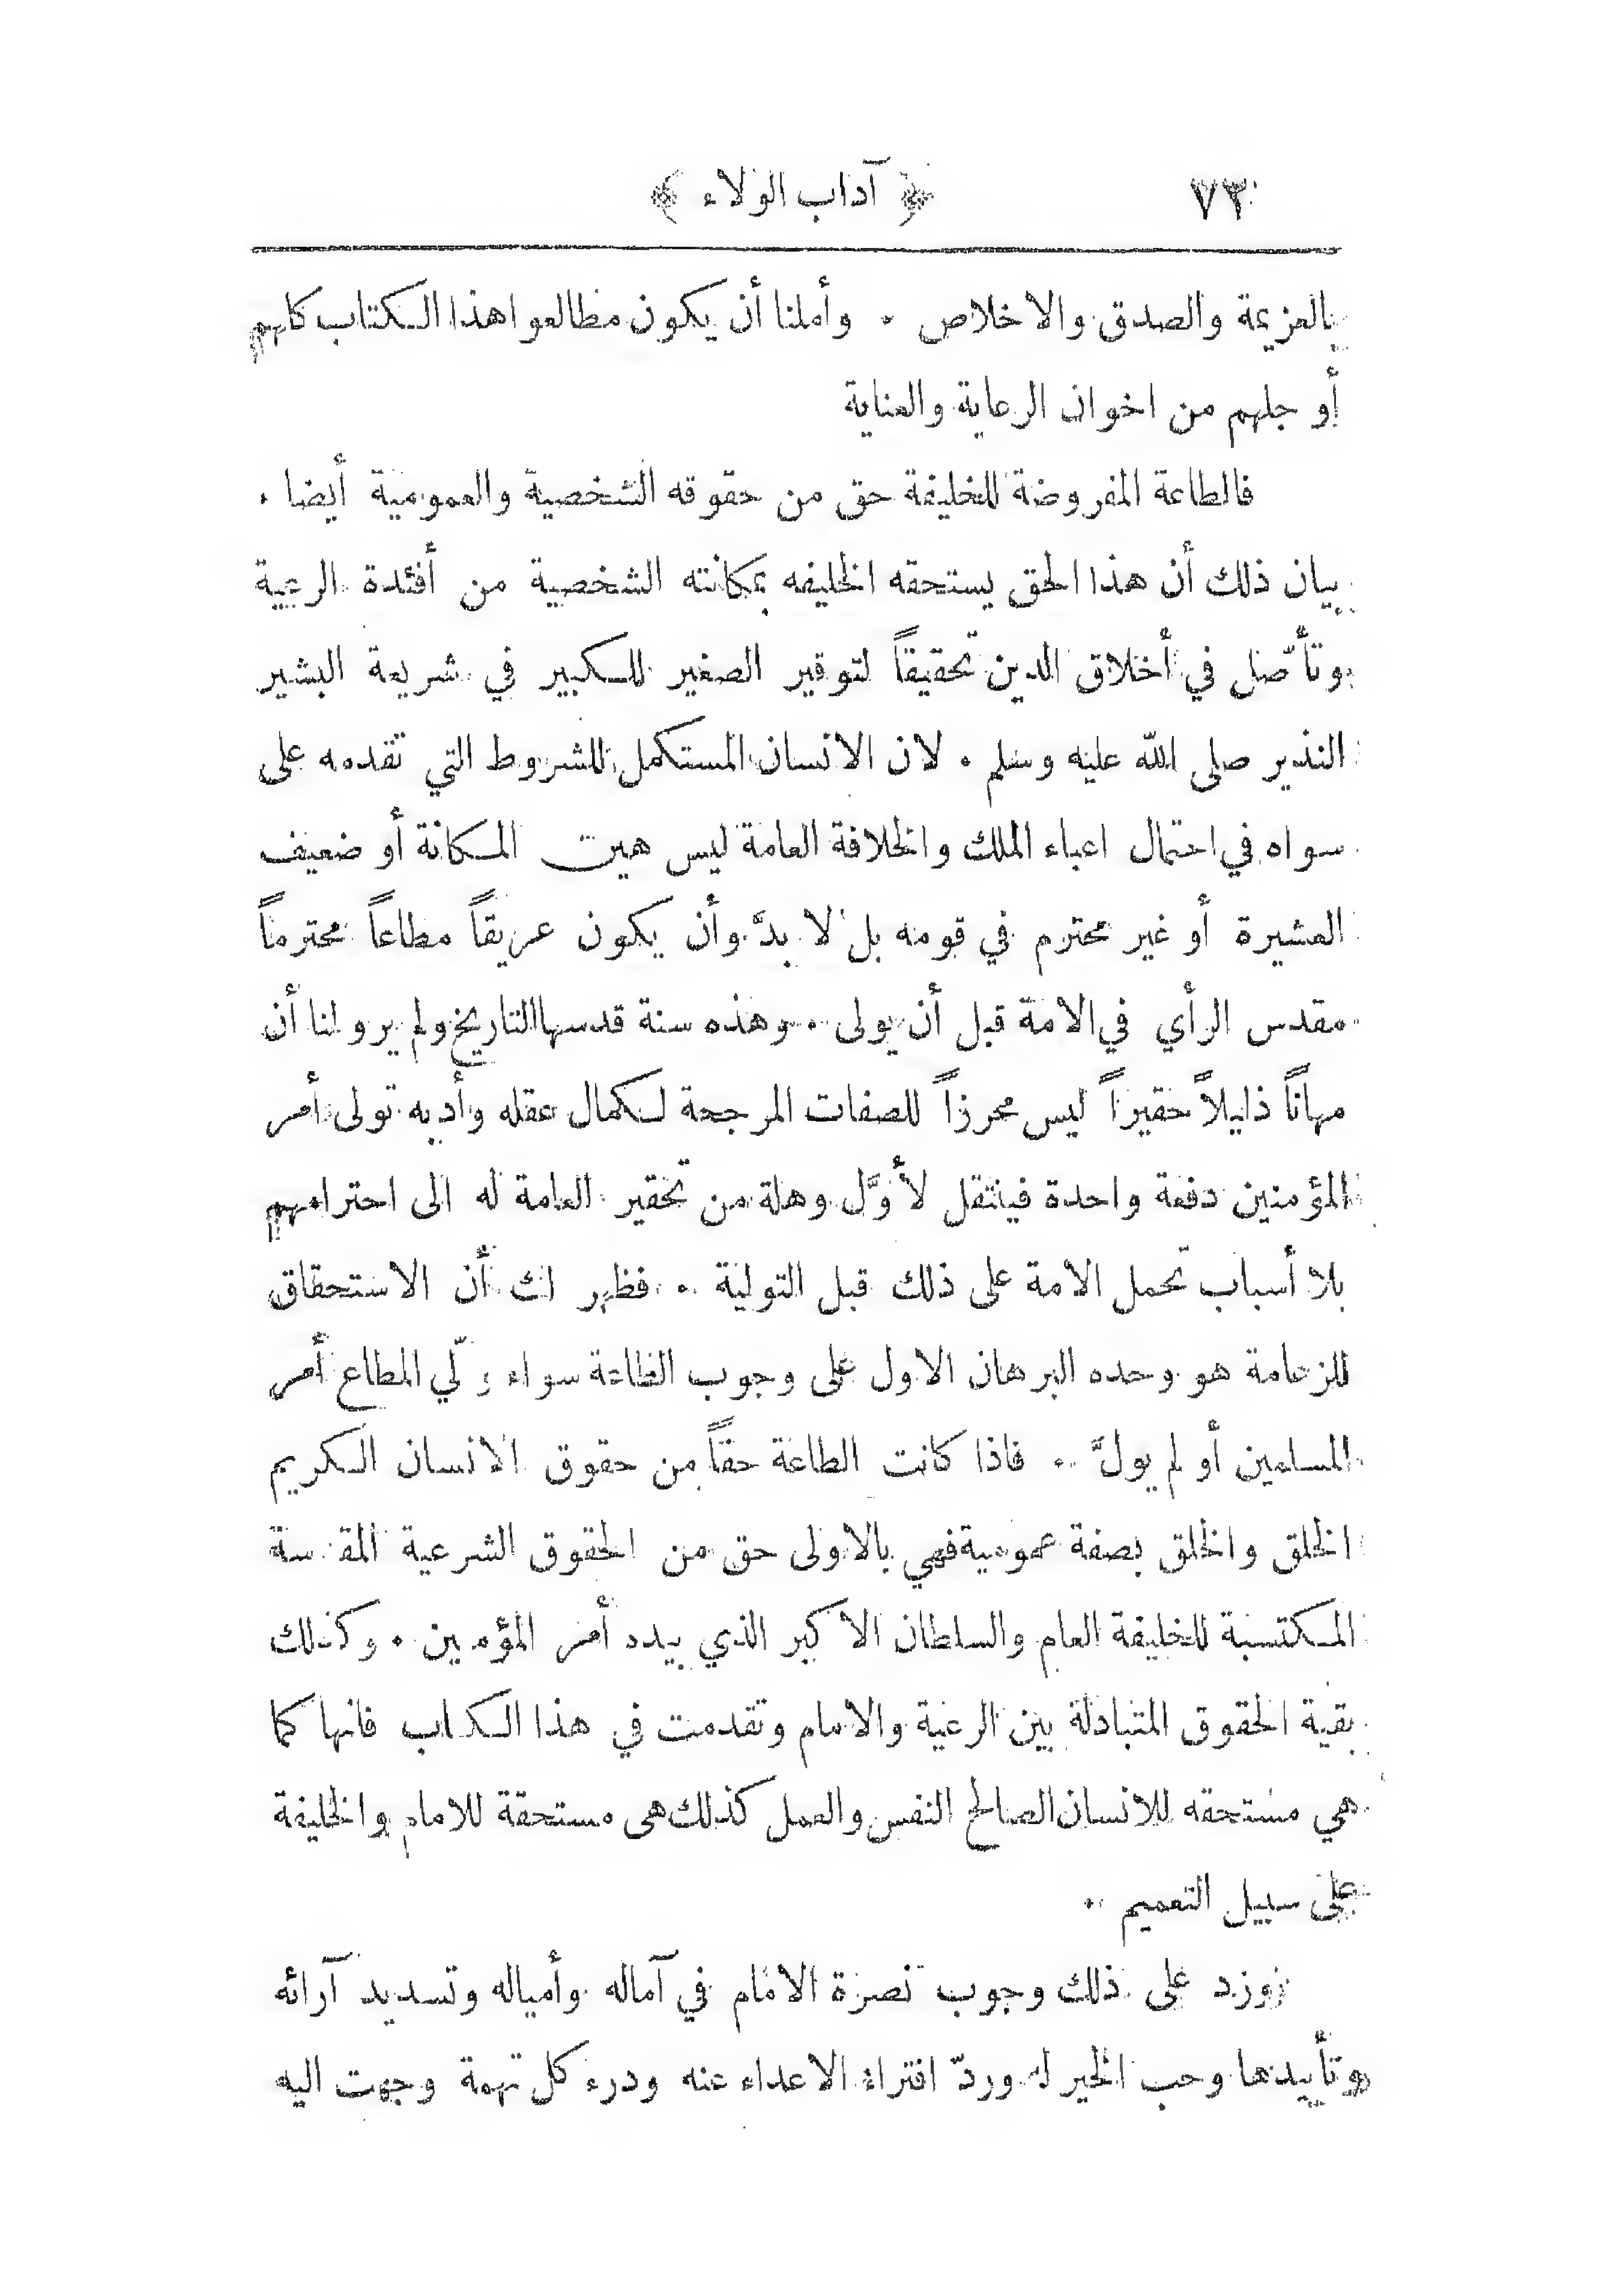 ٧٣ ﴿ آداب الولاء ﴾
بالعزيمة والصدق والاخلاص . وأملنا أن يكون مطالعوا هذا الكتاب كلهم
أو جلهم من اخوان الرعاية والعناية
فالطاعة المفروضة للخليفة حق من حقوقه الشخصية والعمومية أيضا .
بيان ذلك أن هذا الحق يستحقه الخليفه بمكانته الشخصية من أفئدة الرعية
وتأصّل في أخلاق الدين تحقيقاً لتوقير الصغير للكبير في شريعة البشير
النذير صلى الله عليه وسلم . لان الانسان المستكمل للشروط التي تقدمه على
سواه في احتمال اعباء الملك والخلافة العامة ليس هين المكانة أو ضعيف
العشيرة أو غير محترم في قومه بل لا بدَّ وأن يكون عريقاً مطاعاً محترماً
مقدس الرأي في الامة قبل أن يولى . وهذه سنة قدسها التاريخ ولم يرو لنا أن
مهاناً ذليلاً حقيراً ليس محرزاً للصفات المرجحة لكمال عقله وأدبه تولى أمر
المؤمنين دفعة واحدة فينتقل لأوَّل وهلة من تحقير العامة له الى احترامهم
بلا أسباب تحمل الامة على ذلك قبل التولية .. فظهر لك أن الاستحقاق
للزعامة هو وحده البرهان الاول على وجوب الطاعة سواء ولّي المطاع أمر
المسلمين أو لم يولَّ .. فاذا كانت الطاعة حقاً من حقوق الانسان الكريم
الخلق والخلق بصفة عمومية فهي بالاولى حق من الحقوق الشرعية المقدسة
المكتسبة للخليفة العام والسلطان الاكبر الذي بيده أمر المؤمنين . وكذلك
بقية الحقوق المتبادلة بين الرعية والامام وتقدمت في هذا الكتاب فانها كما
هي مستحقه للانسان الصالح النفس والعمل كذلك هى مستحقة للامام والخليفة
على سبيل التعميم ..
وزد على ذلك وجوب نصرة الامام في آماله وأمياله وتسديد آرائه
وتأييدها وحب الخير له وردّ افتراء الاعداء عنه ودرء كل تهمة وجهت اليه